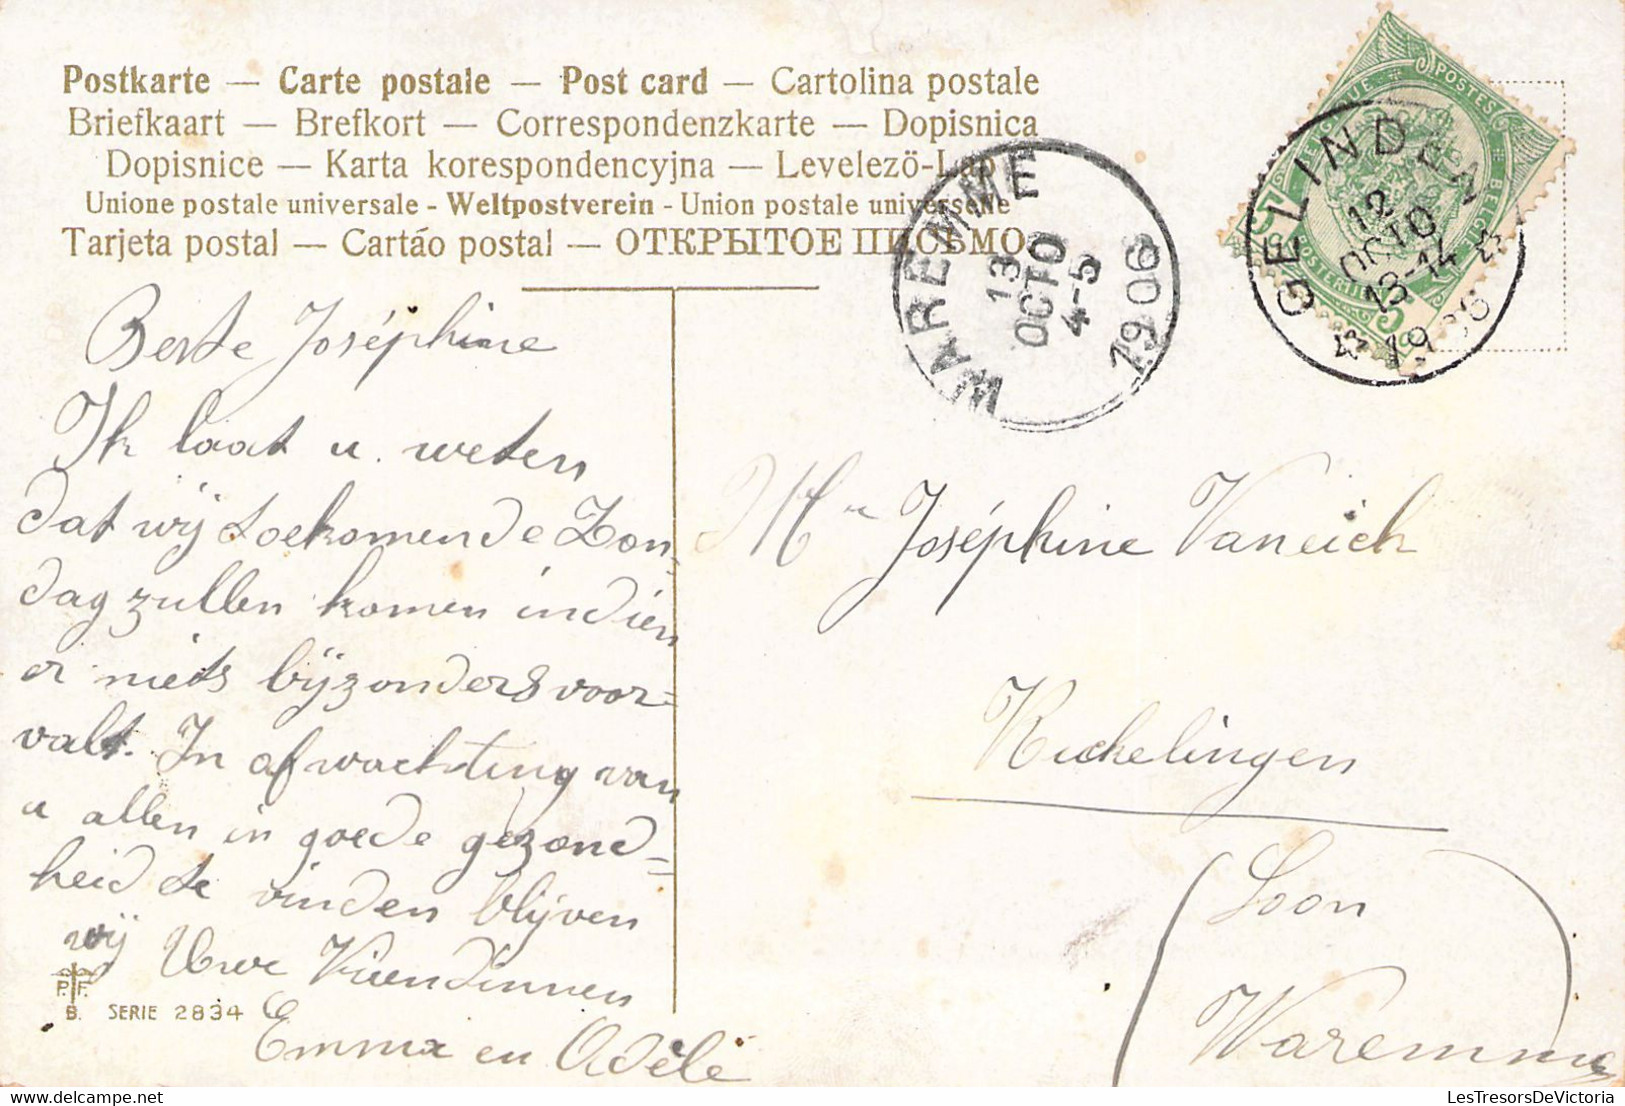 Postkarte — Carte postale — Post card — Cartolina postale
Briefkaart — Brefkort — Correspondenzkarte — Dopisnica
Dopisnice — Karta korespondencyjna — Levelezö-Lap
Unione postale universale - Weltpostverein - Union postale universelle
Tarjeta postal — Cartáo postal — ОТКРЫТОЕ ПИСЬМО
WAREMME
13
OCTO
4-5
1906
BELGIQUE
POSTES
BELGIE
POSTERIJEN
5
5
GELINDEN
12
OCTO
13-14
1906
Beste Joséphine
Ik laat u weten
dat wij toekomende Zon-
dag zullen komen indien
er niets bijzonders voor-
valt. In afwachting van
u allen in goede gezond-
heid te vinden blijven
wij Uwe Vriendinnen
Emma en Adèle
Joséphine Vaneich
Kuckelingen
(Loon
Waremme)
P.F.
B. SERIE 2834
LesTresorsDeVictoria